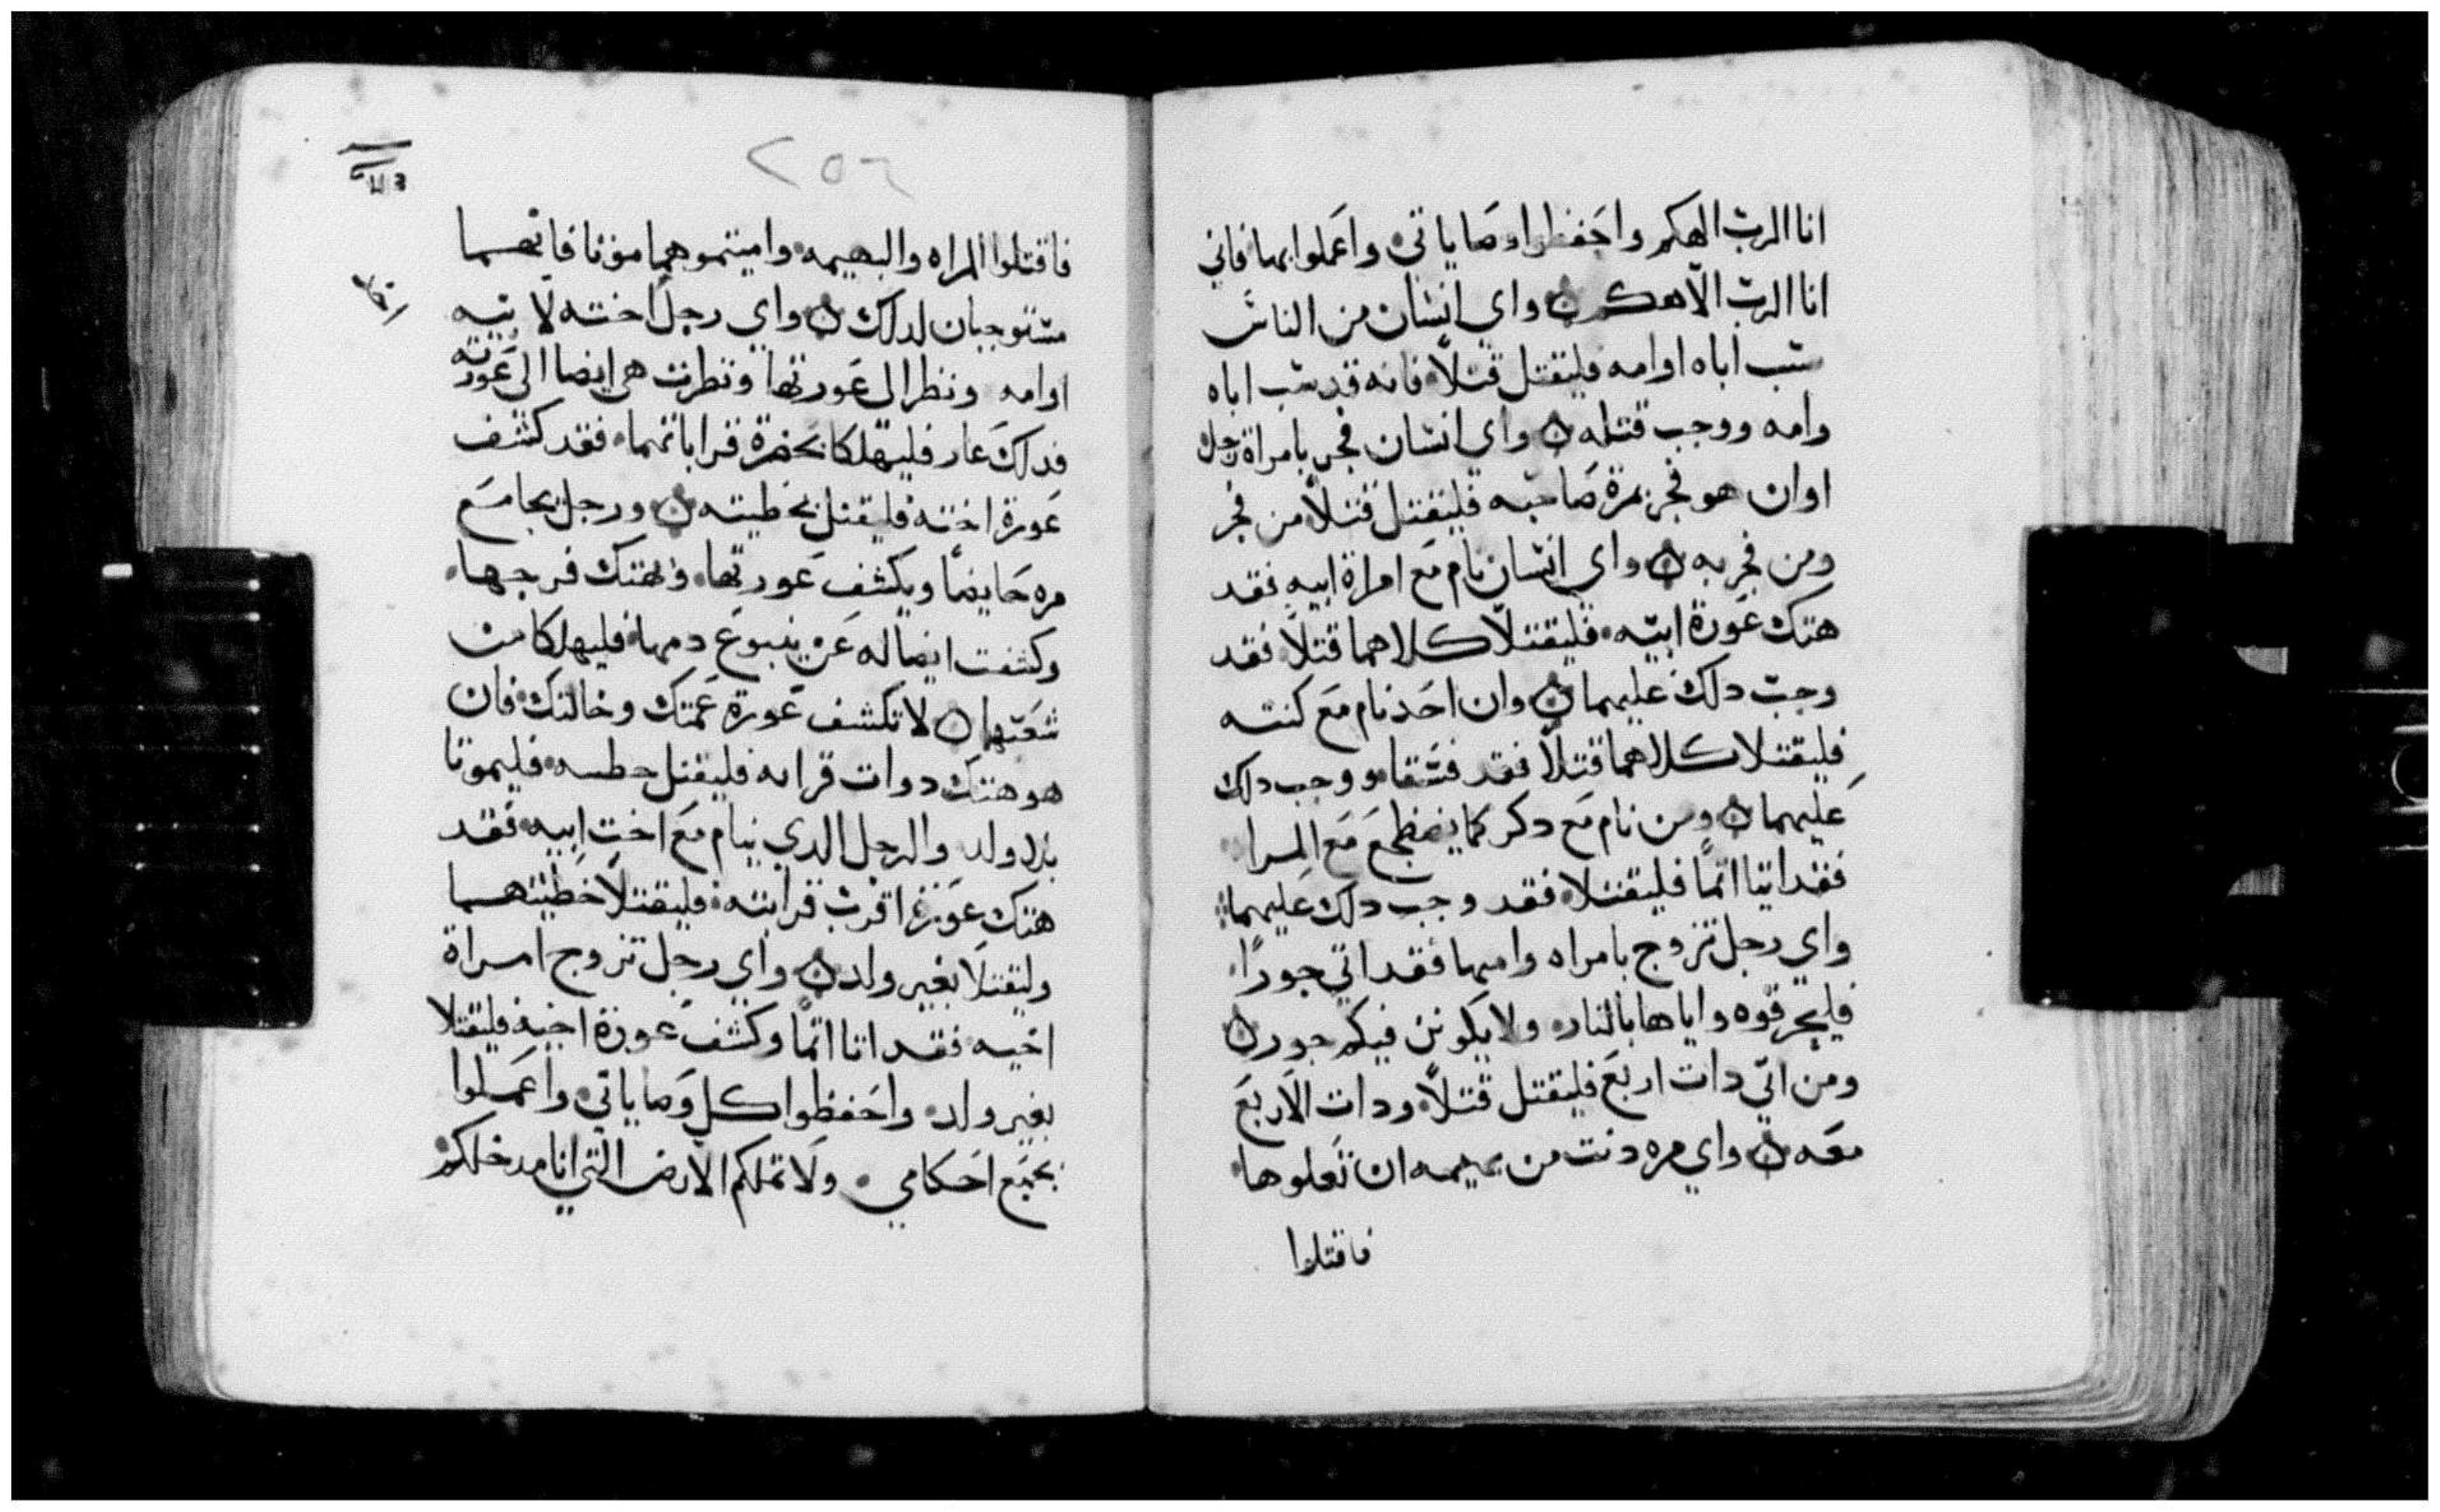 انا الرب الهكم واحفظوا وصاياتي واعملوا بها فاني
انا الرب الاهكم واي انسان من الناس
سب اباه او امه فليقتل قتلاً فانه قد سب اباه
وامه ووجب قتله واي انسان فجر بامراة رجل
او ان هو فجر بمرة صاحبه فليقتل قتلاً من فجر
ومن فجر به واي انسان نام مع امراة ابيه فقد
هتك عورة ابيه فليقتلا كلاهما قتلاً فقد
وجب دلك عليهما وان احد نام مع كنته
فليقتلا كلاهما قتلاً فقد فسقا ووجب دلك
عليهما ومن نام مع دكر كما يضطجع مع المراه
فقد اتيا اثماً فليقتلا فقد وجب دلك عليهما
واي رجل تزوج بامراه وامها فقد اتي جوراً
فليحرقوه واياها بالنار ولا يكونن فيكم جور
ومن اتي دات اربع فليقتل قتلاً ودات الاربع
معه واي مره دنت من بهيمه ان تعلوها
فاقتلوا
٢٥٦
فاقتلوا المراه والبهيمه واميتموهما موتا فانهما
مستوجبان لدلك واي رجل اخته لابيه
او امه ونظر الى عورتها ونظرت هي ايضا الى عورته
فدلك عار فليهلكا بحضرة قراباتهما فقد كشف
عورة اخته فليقتل بخطيته ورجل يجامع
مره حايضاً ويكشف عورتها وهتك فرجها
وكشفت ايضا له عن ينبوع دمها فليهلكا من
شعبهما لا تكشف عورة عمتك وخالتك فان
هو هتك دوات قرابه فليقتل فليموتا
بلا ولد والرجل الدي ينام مع اخت ابيه فقد
هتك عورة اقرب قرابته فليقتلا خطيتهما
وليقتلا بغير ولد واي رجل تزوج امراة
اخيه فقد اتا اثماً وكشف عورة اخيه فليقتلا
بغير ولد واحفظوا كل وصاياتي واعملوا
بجميع احكامي ولا تملكم الارض التي انا مدخلكم